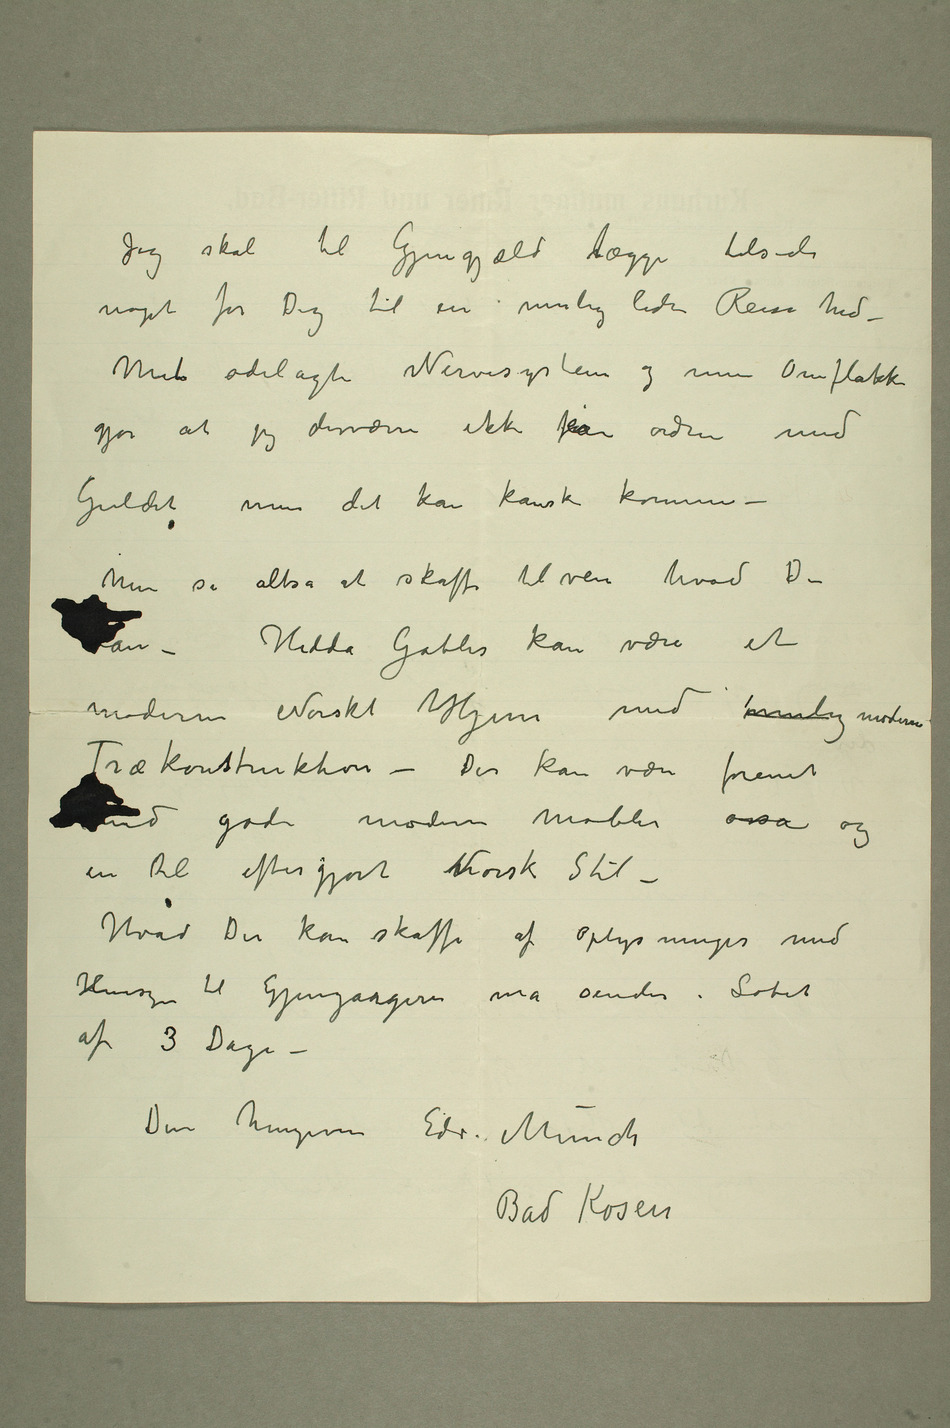 Jeg skal til Gjengjæld lægge tilside
noget for Dig til en mulig liden Reise hid –
Mit ødelagte Nervesystem og min Omflakken
gjør at jeg desværre ikke kan ordne med
Guldet men det kan kanske komme –
Men så altså at skaffe tilveie hvad Du
kan – Hedda Gabler kan være et
moderne Norskt Hjem med mulig moderne
Trækonstruktion – Der kan være forenet
med gode moderne møbler også og
en til eftergjort Norsk Stil –
Hvad Der kan skaffes af Oplysninger med
Hensyn til Gjengangere må sendes i Løbet
af 3 Dage –
Din hengivne Edv. Munch
Bad Kösen